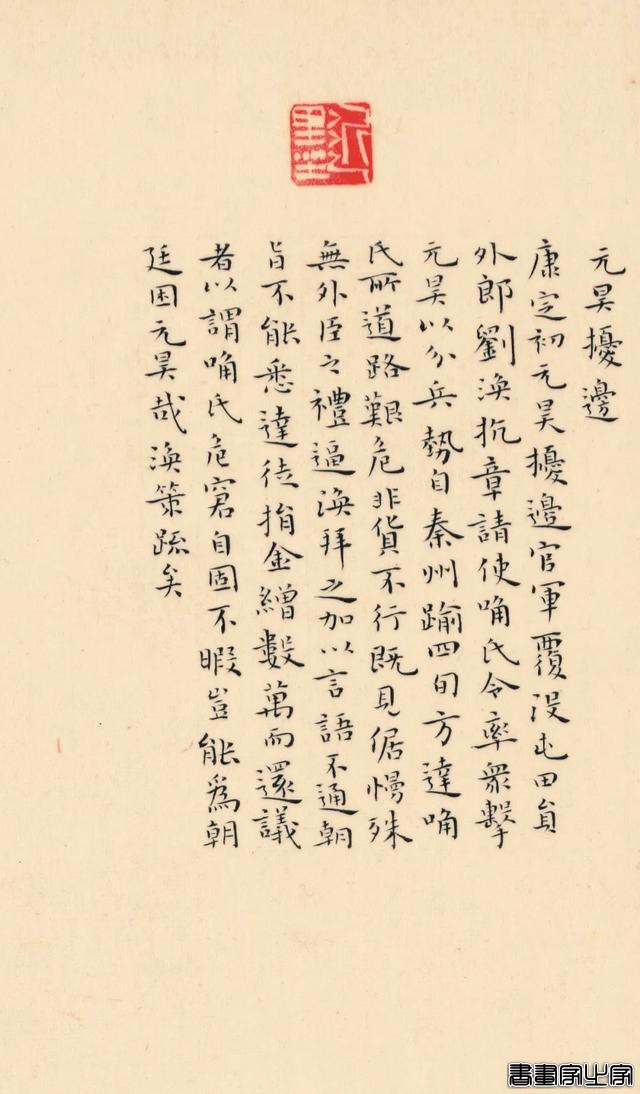 元昊擾邊
康定初元昊擾邊官軍覆没屯田員
外郎劉渙抗章請使唃氏令率衆擊
元昊以分兵勢自秦州踰四旬方達唃
氏所道路艱危非貨不行既見倨慢殊
無外臣之禮逼渙拜之加以言語不通朝
旨不能悉達徒捐金繒數萬而還議
者以謂唃氏危窘自固不暇豈能爲朝
廷困元昊哉渙策疏矣
書畫家之家